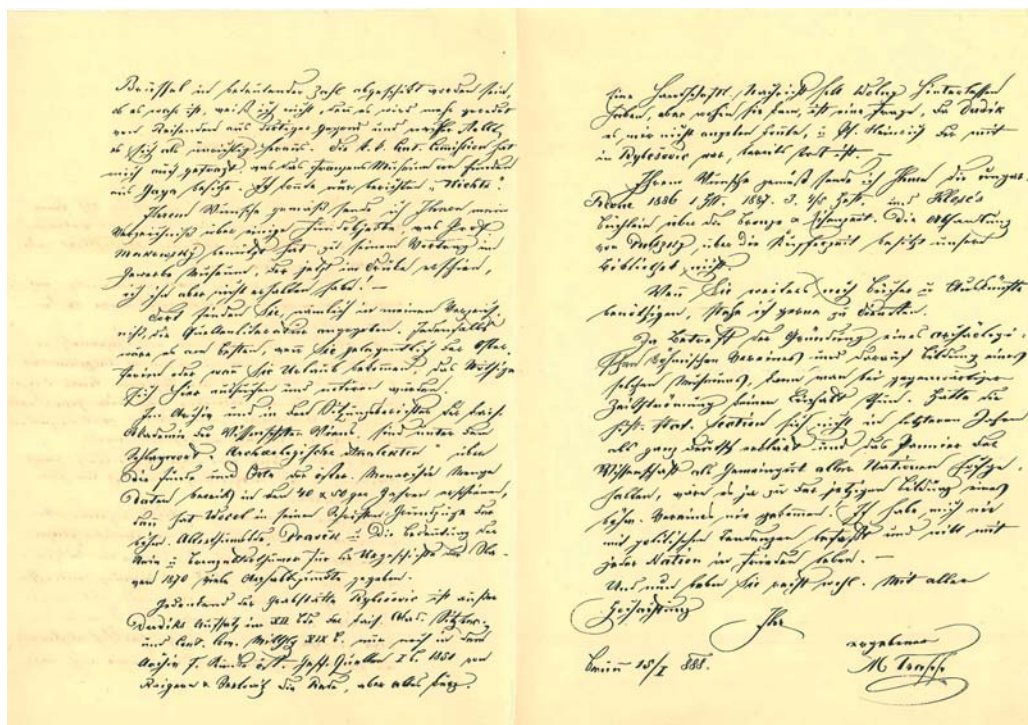 Brüssel in bedeutender Zahl abgeschickt worden sein,
ob es wahr ist, weiß ich nicht, denn es wird mehr geredet
von Reisenden aus dortiger Gegend und nachher stellt
es sich als unrichtig heraus. Die k. k. Cent. Comission hat
mich auch gefragt, was das Franzens Museum von Funden
aus Gaya besitze. Ich konnte nur berichten „Nichts".
Ihrem Wunsche gemäß sende ich Ihnen mein
Verzeichniß über einige Fundobjekte, was Prof
Makowsky benützt hat zu seinem Vortrag im
Gewerbe Museum, der jetzt im Drucke erschien,
ich ihn aber nicht erhalten habe! —
Dort finden Sie, nämlich in meinem Verzeich-
niß, die Quellenliteratur angegeben. Jedenfalls
wäre es am besten, wenn Sie gelegentlich der Oster-
ferien oder wann Sie Urlaub bekommen, das Nöthige
sich hier aufsuchen und notiren würden.
Im Archiv und in den Sitzungsberichten der kais.
Akademie der Wissenschaften Wiens, sind unter dem
Schlagwort: Archaeologische Analecten über
die Funde und Orte der österr. Monarchie Menge
Daten bereits in den 40 & 50ger Jahren erschienen,
dann hat Wocel in seinen Schriften: Grundzüge der
böhm. Alterthumskde, Pravěk u. die Bedeutung der
Stein u. Bronzealterthümer für die Urgeschichte der Sla-
ven 1870 viele Anhaltspunkte gegeben.
der Grabstätte Rybešovic ist außer
Dudiks Aufsatz im XII Bde der kais. Akad. Sitzber.
und Cent. Com. Mitthlg XIX B. nur noch in dem
Archiv f. Kunde öst. Gesch. Quellen I B. 1850 von
Raigern & die Rede, aber alles kurz.
Eine Nachricht soll Wolny hinterlassen
haben, aber wohin sie kam, ist eine Frage, da Dudik
es mir nicht angeben konnte, u. Gf. der mit
in Rybešovic war, bereits todt ist. —
Ihrem Wunsche gemäß sende ich Ihnen die
1886 1887. und
Büchlein über die Bronze & Eisenzeit. Die Abhandlung
von Pulszky, über die Kupferzeit besitzt unsere
Bibliothek nicht.
Wenn Sie weiters noch Bücher u. Auskünfte
benöthigen, stehe ich gerne zu Diensten.
In Betreff der Gründung eines archäologi-
schen böhmischen Vereines und daraus Bildung eines
solchen Museums, kann man bei gegenwärtiger
Zeitströmung keinen Einhalt thun. Hätte die
hist. stat. Section sich nicht in letzteren Jahren
als ganz deutsch erklärt und das Panier der
Wissenschaft als Gemeingut aller Nationen hochge-
halten, wäre es ja zu der jetzigen Bildung eines
böhm. Vereines nie gekommen. Ich habe mich nie
mit politischen Tendenzen befaßt und will mit
jeder Nation in Frieden leben. —
Und nun leben Sie recht wohl. Mit aller
Hochachtung
Ihr
ergebener
M Trapp
Brünn 15/I 888.